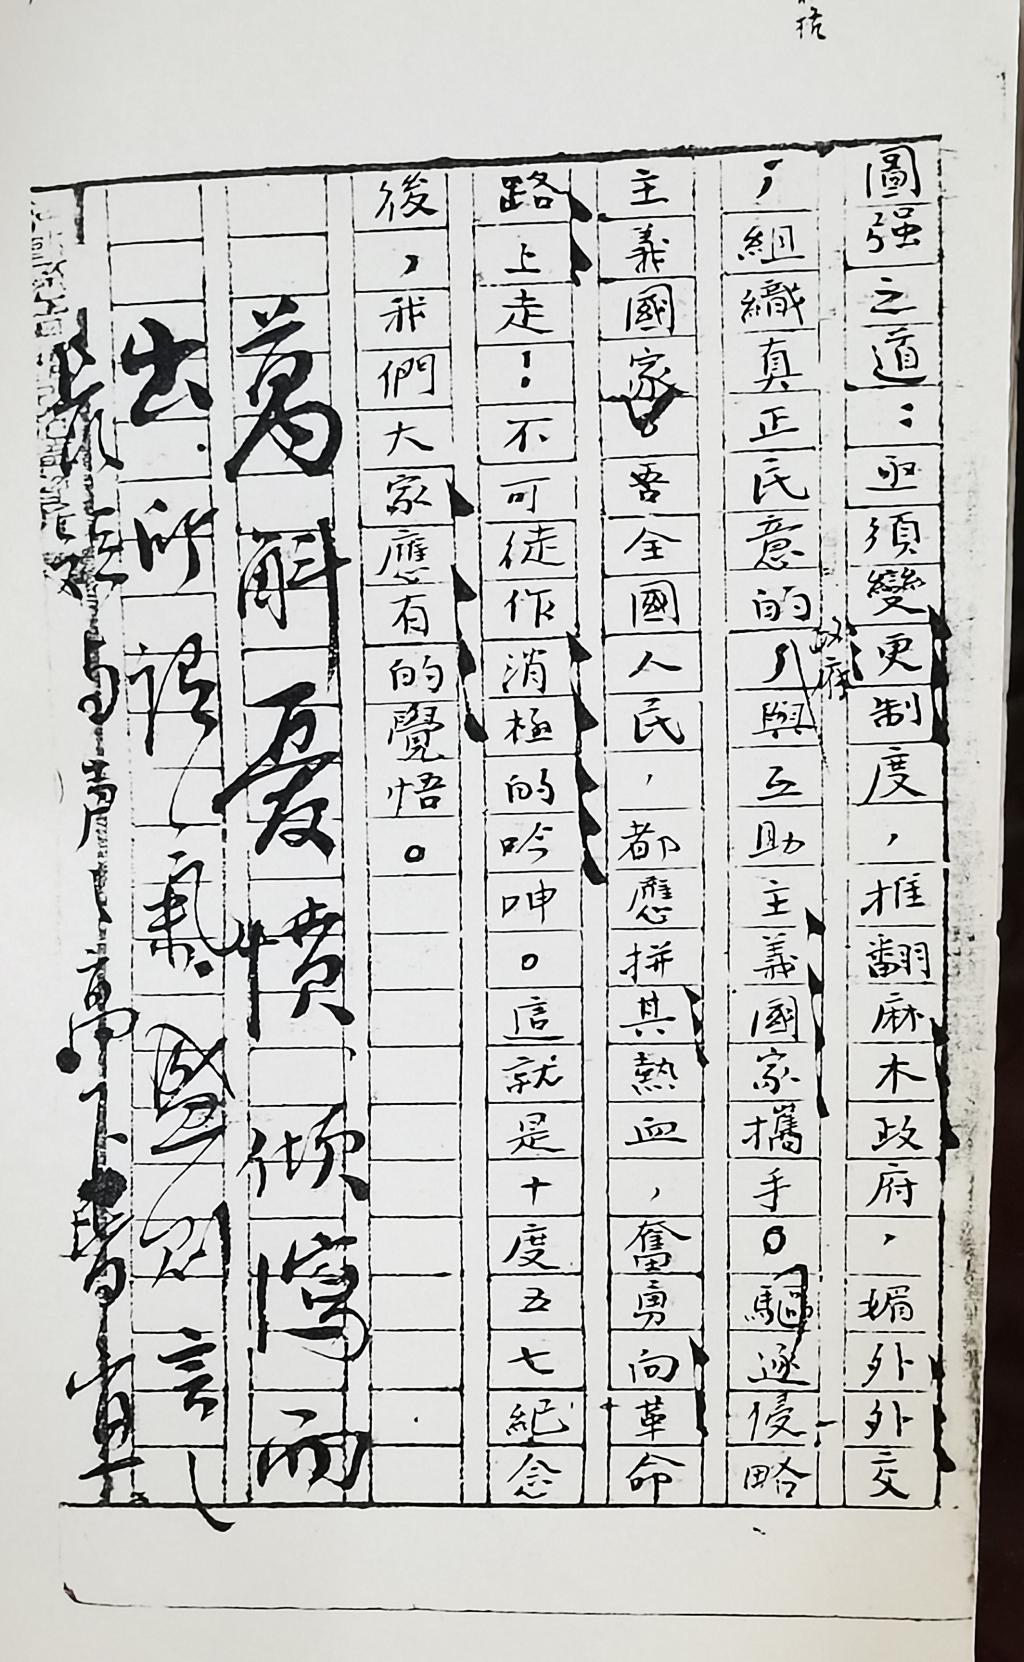 圖强之道：亟須變更制度，推翻麻木政府，媚外外交
，組織真正民意的，政府與互助主義國家攜手。驅逐侵略
主義國家。吾全國人民，都應拼其熱血，奮勇向革命
路上走！不可徒作消極的吟呻。這就是十度五七紀念
後，我們大家應有的覺悟。
萬斛憂憤傾瀉而
出所謂氣盛則言